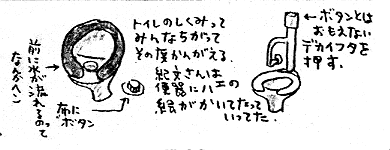 前に水が流れるのって
なんかヘン
床に
ボタン
トイレのしくみって
みんなちがって
その度かんがえる
紀文さんは
便器にハエの
絵がかいてたって
いってた.
←ボタンとは
おもえない
デカイフタを
押す。